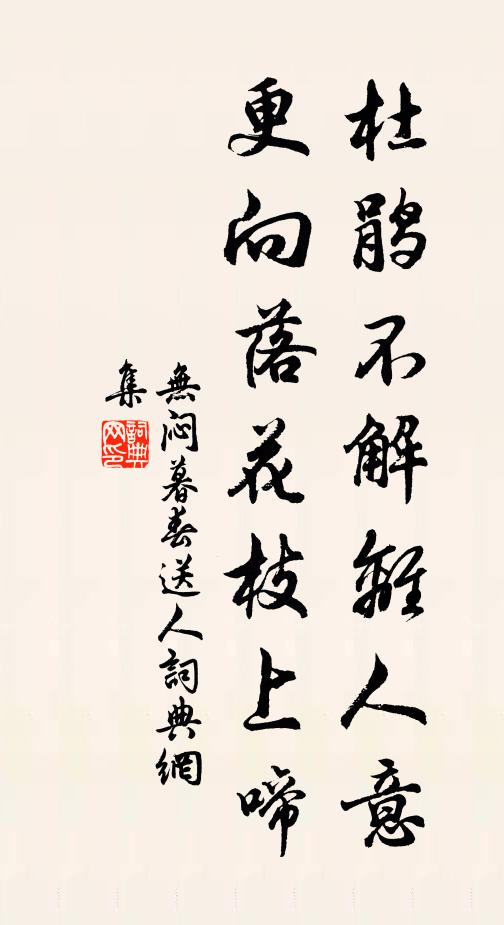 杜鹃不解離人意
更向落花枝上啼
無闷暮春送人詞典網
集
詞典
网印